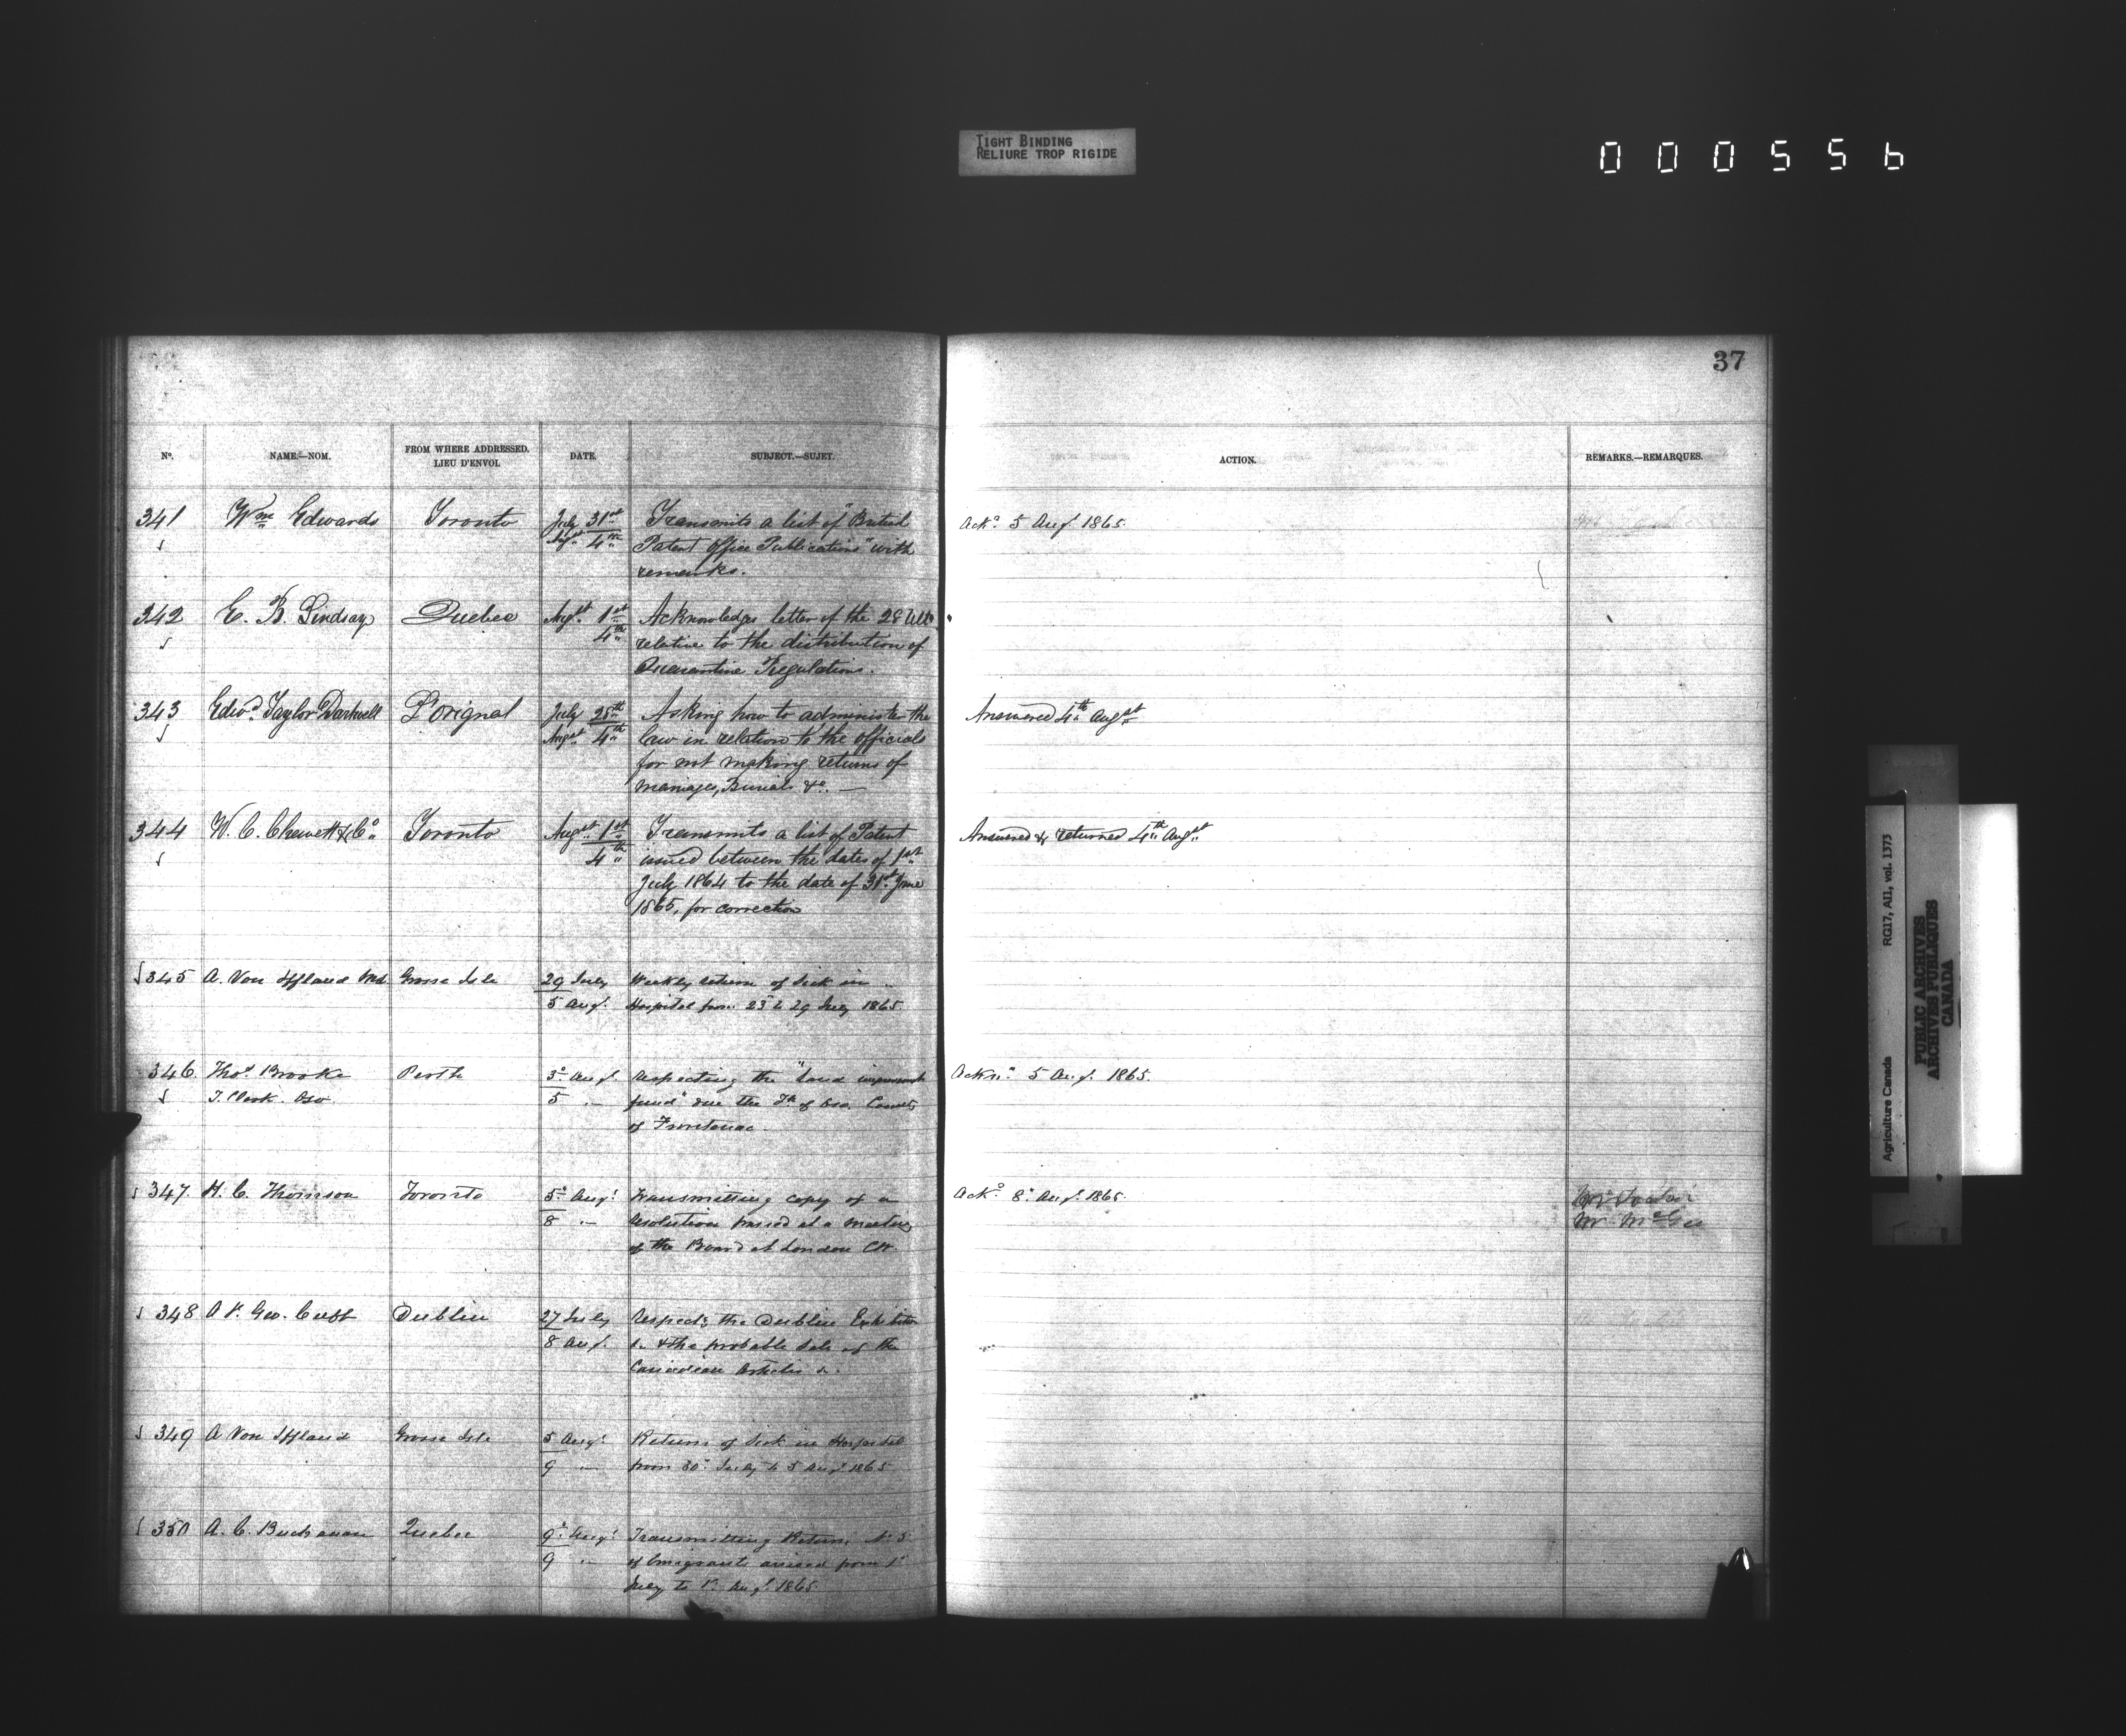 TIGHT BINDING
RELIURE TROP RIGIDE
000556
37
No. NAME.—NOM. FROM WHERE ADDRESSED. LIEU D'ENVOI. DATE. SUBJECT.—SUJET. ACTION. REMARKS.—REMARQUES.
341 Wm Edwards Toronto July 31st Transmits a list of "British Ackd. 5 Augt. 1865.
Augst 4th Patent Office Publications" with
remarks.
342 E. B. Lindsay Quebec Augst 1st Acknowledges letter of the 28 Ulto
4th relative to the distribution of
Quarantine Regulations.
343 Edwd. Taylor Dartnell L'Orignal July 28th Asking how to administer the Answered 4th Augst
Augst 4th law in relation to the officials
for not making returns of
marriages, Burials &c. —
344 W. C. Chewett & Co. Toronto Augst 1st Transmits a list of Patent Answered & returned 4th Augst
4th issued between the dates of 1st
July 1864 to the date of 31st June
1865, for correction
345 A. Von Iffland Md. Grosse Isle 29 July Weekly return of Sick in
5 Augt. Hospital from 23 to 29 July 1865.
346. Thos. Brooke Perth 3d Augt. Respecting the "Land improvement Ackn. 5 Augt. 1865.
T. Clerk. Oso 5 " fund" due the Tp. of Oso County
of Frontenac.
347. H. C. Thomson Toronto 5th Augt. Transmitting copy of a Ackd. 8th Augt. 1865.
8 " Resolution passed at a meeting Mr McGee
of the Board at London CW.
348 Geo. Dublin 27 July Respects the Dublin Exhibition
8 Augt. & the probable Sale of the
Canadian Articles &.
349 A Von Iffland Grosse Isle 5 Augt. Return of Sick in Hospital
9 " from 30th July to 5 Augt. 1865
350 A. C. Buchanan Quebec 9th Augt. Transmitting Return, No 3.
9 " of Emigrants arrived from 1st
July to 1st Augt. 1865
Agriculture Canada RG17, AII, vol. 1373
PUBLIC ARCHIVES
ARCHIVES PUBLIQUES
CANADA